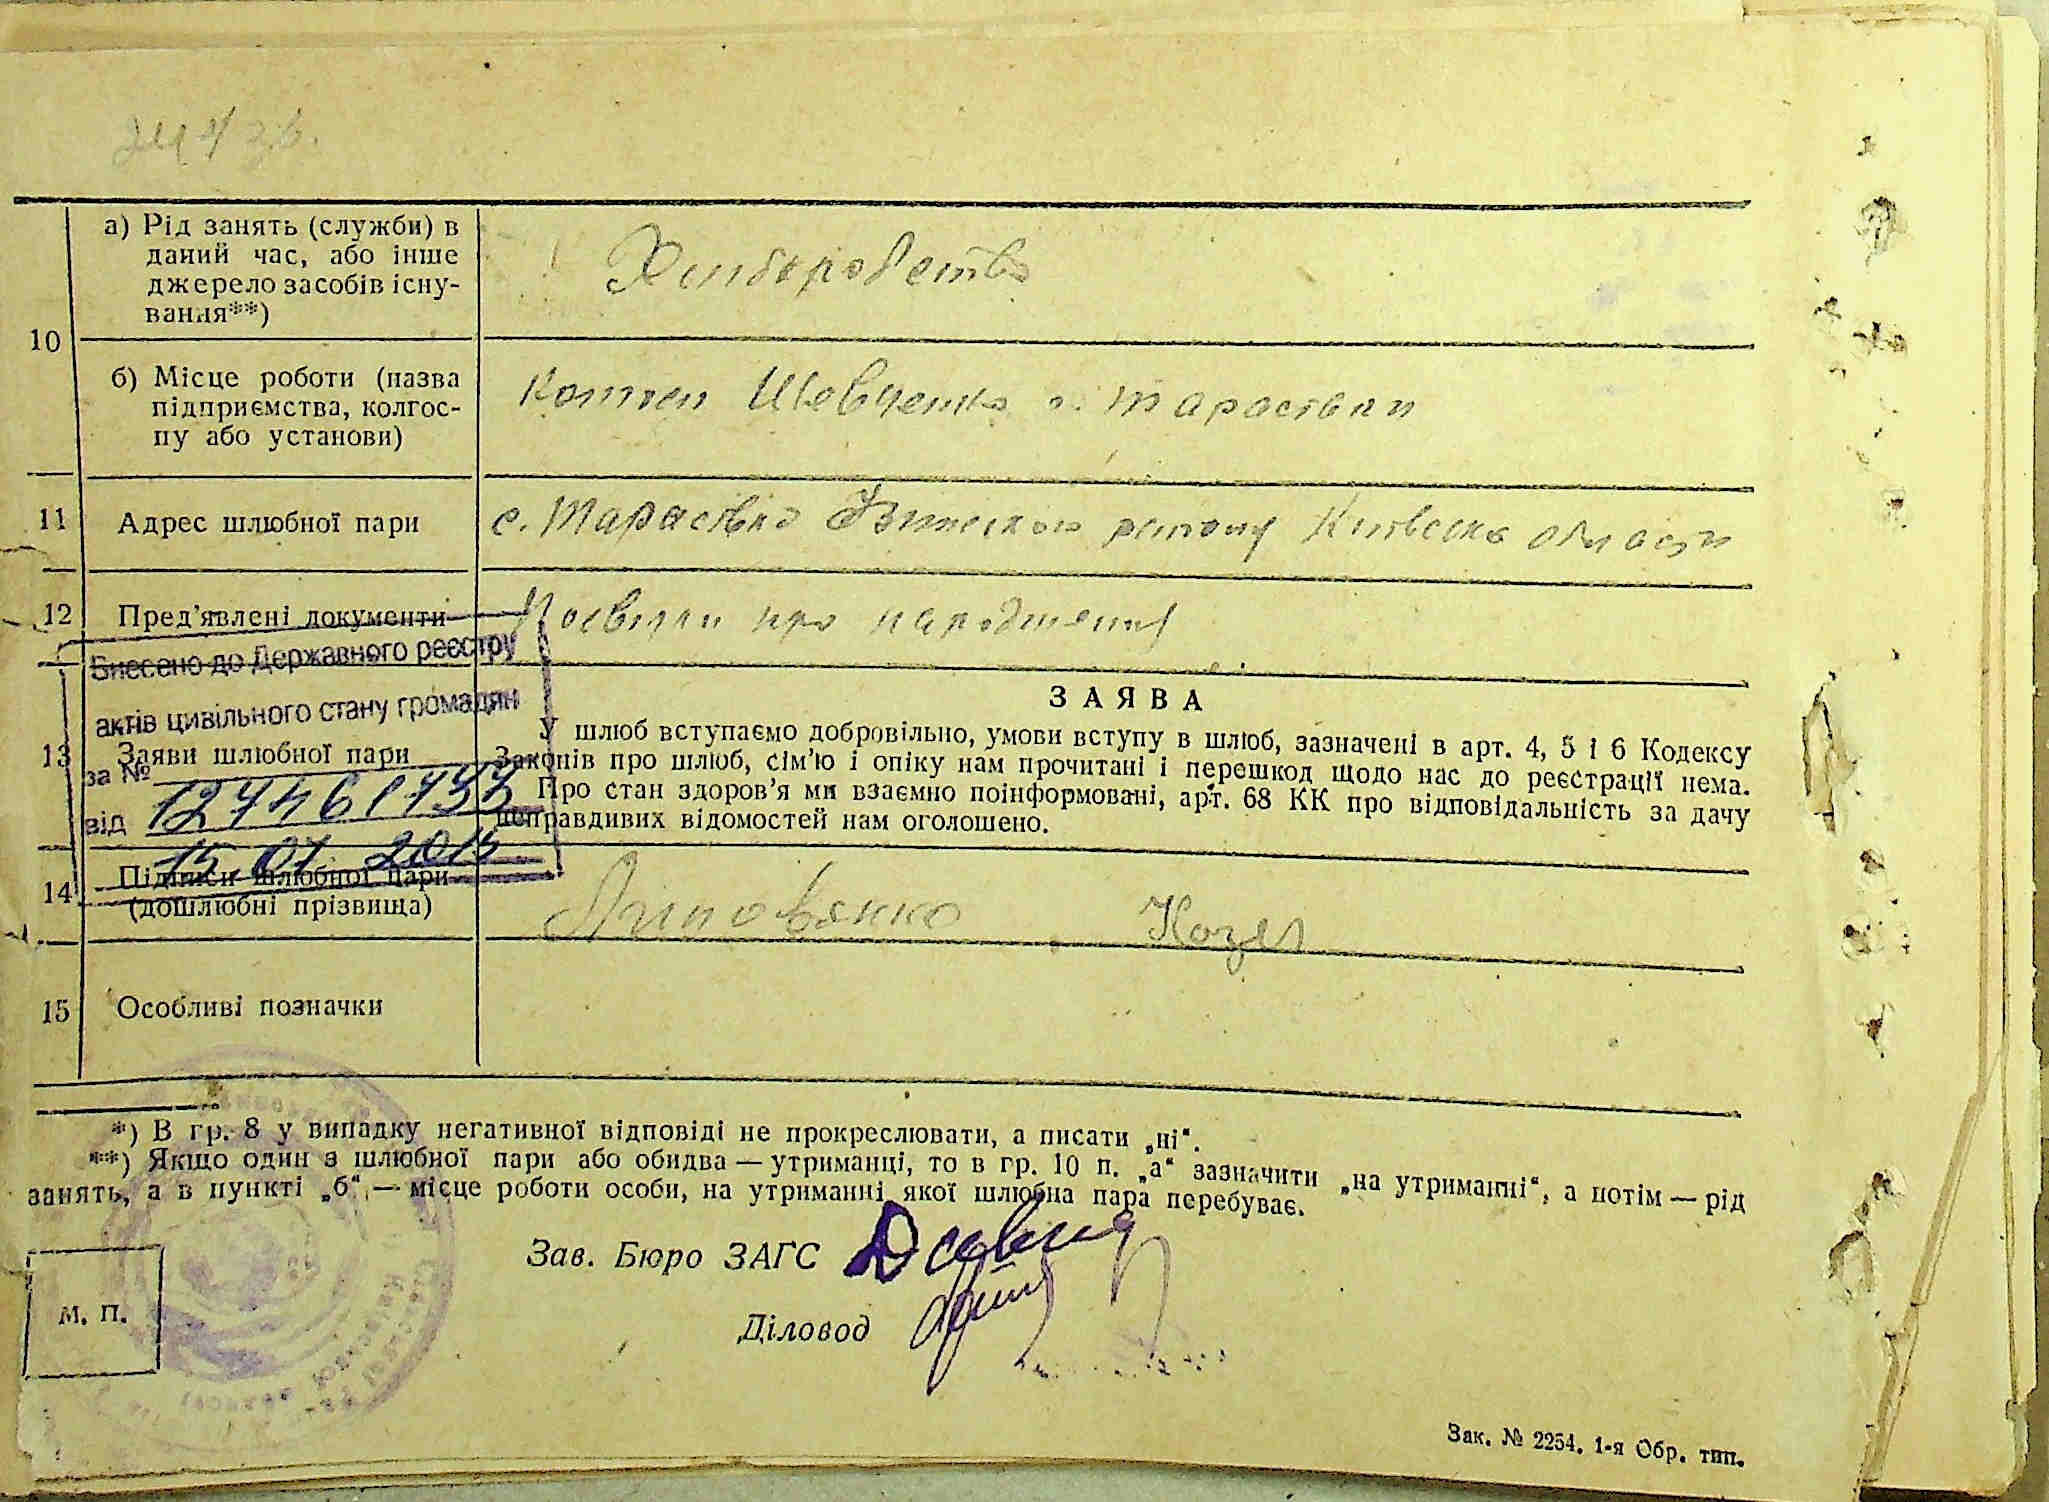 а) Рід занять (служби) в
даний час, або інше
джерело засобів існу-
вання**)
Хліборобство
10
б) Місце роботи (назва
підприємства, колгос-
пу або установи)
Шевченка с. Тарасівки
11
Адрес шлюбної пари
с. Тарасівка району Київська області
12
Пред'явлені документи
про народження
Внесено до Державного реєстру
актів цивільного стану громадян
за №
від
15.01 2015
13
Заяви шлюбної пари
ЗАЯВА
У шлюб вступаємо добровільно, умови вступу в шлюб, зазначені в арт. 4, 5 і 6 Кодексу
Законів про шлюб, сім'ю і опіку нам прочитані і перешкод щодо нас до реєстрації нема.
Про стан здоров'я ми взаємно поінформовані, арт. 68 КК про відповідальність за дачу
неправдивих відомостей нам оголошено.
14
Підписи шлюбної пари
(дошлюбні прізвища)
Липовенко Козел
15
Особливі позначки
*) В гр. 8 у випадку негативної відповіді не прокреслювати, а писати „ні“.
**) Якщо один з шлюбної пари або обидва — утриманці, то в гр. 10 п. „а“ зазначити „на утриманні“, а потім — рід
занять, а в пункті „б“ — місце роботи особи, на утриманні якої шлюбна пара перебуває.
Зав. Бюро ЗАГС
М. П.
Діловод
Зак. № 2254. 1-я Обр. тип.